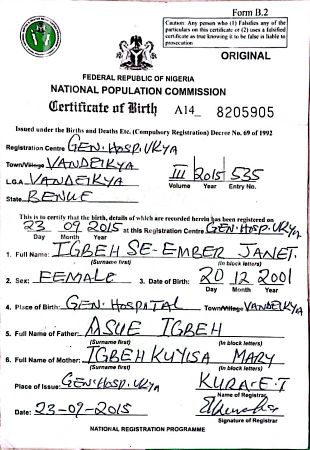 Form B.2
Caution: Any person who (1) Falsifies any of the
particulars on this certificate or (2) uses a falsified
certificate as true knowing it to be false is liable to
prosecution
ORIGINAL
FEDERAL REPUBLIC OF NIGERIA
NATIONAL POPULATION COMMISSION
Certificate of Birth A14_ 8205905
Issued under the Births and Deaths Etc. (Compulsory Registration) Decree No. 69 of 1992
Registration Centre GEN. HOSP. UKYA
Town/Village VANDEIKYA III 2015 535
L.G.A. VANDEIKYA Volume Year Entry No.
State BENUE
This is to certify that the birth, details of which are recorded herein has been registered on
23 09 2015 at this Registration Centre GEN. HOSP. UKYA
Day Month Year
1. Full Name: IGBEH SE-EMBER JANET.
(Surname first) (In block letters)
2. Sex: FEMALE 3. Date of Birth: 20 12 2001
Day Month Year
4. Place of Birth: GEN. HOSPITAL Town/Village VANDEIKYA
5. Full Name of Father: ASUE IGBEH
(Surname first) (In block letters)
6. Full Name of Mother: IGBEH KUYISA MARY
(Surname first) (In block letters)
Place of Issue: GEN. HOSP. UKYA KURA-E.T
Name of Registrar
Date: 23-09-2015
Signature of Registrar
NATIONAL REGISTRATION PROGRAMME